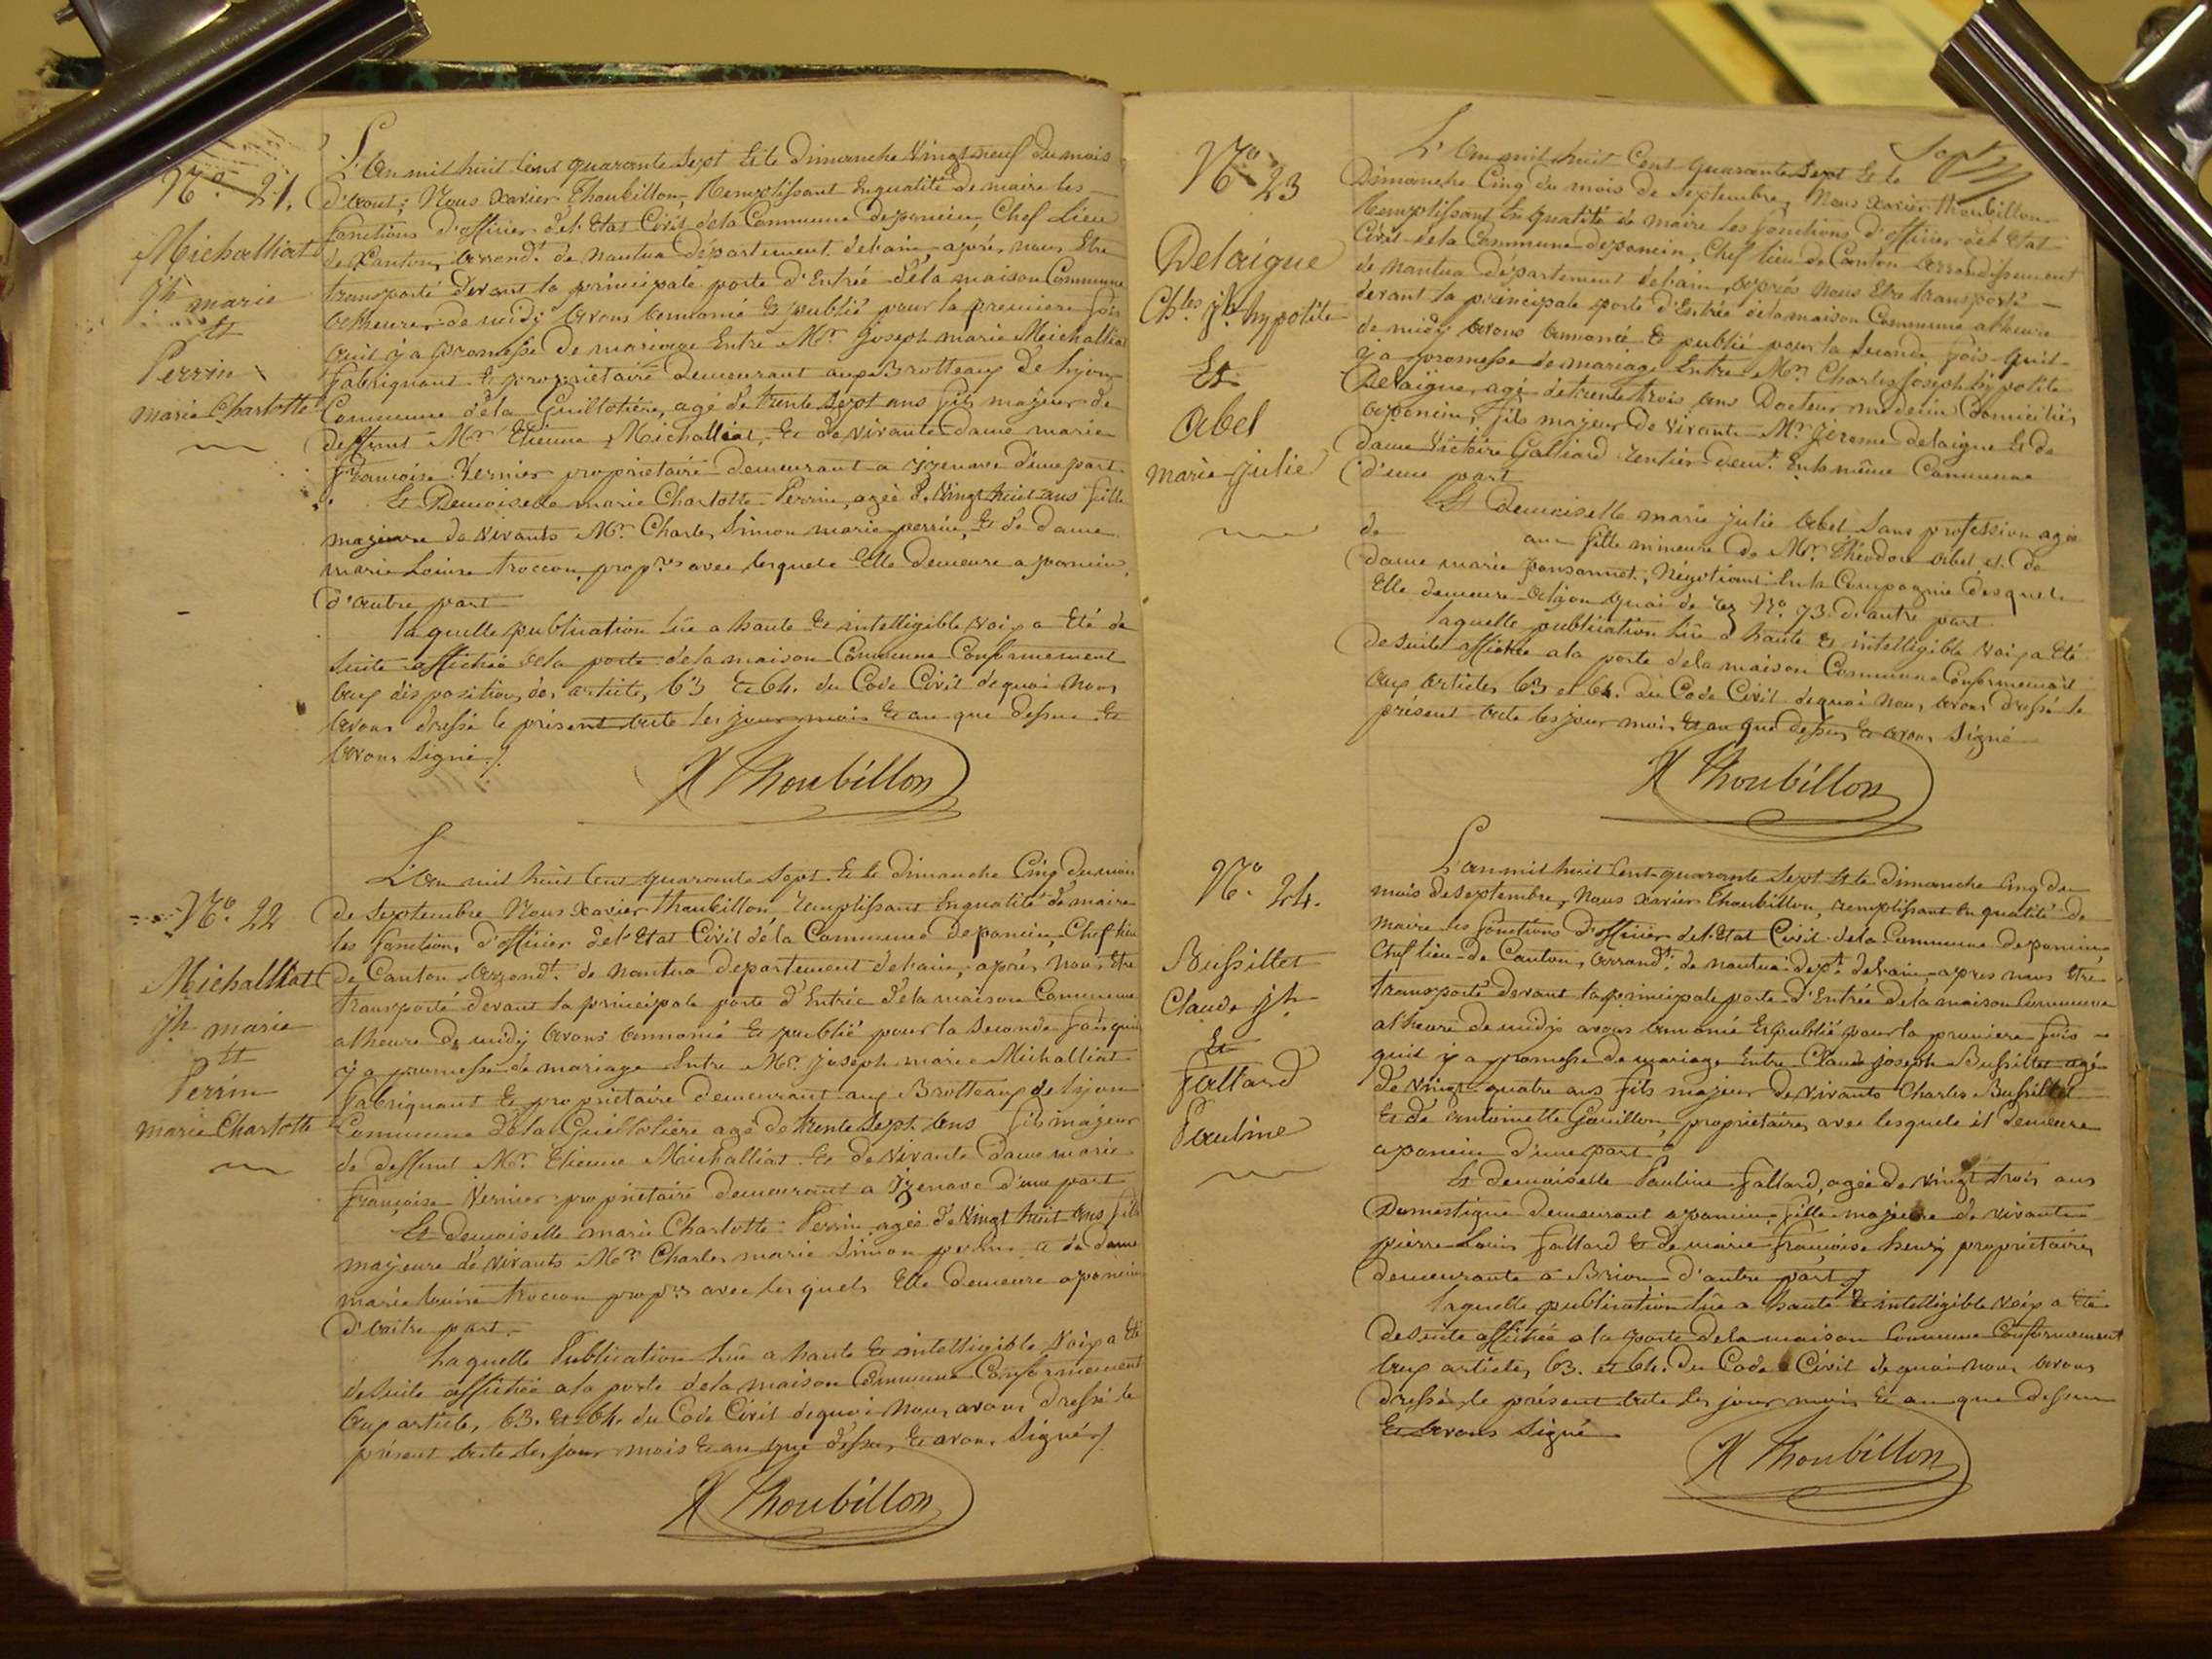 N.° 21.
Michalliat
jh marie
et
Perrin
marie Charlotte
L'An mil huit Cent quarante Sept Et le Dimanche Vingt neuf du mois
d'Aout; Nous Xavier Thoubillon, Remplissant Enqualité de maire les
fonctions d'officier del'Etat Civil dela Commune deponcin, Chef Lieu
de Canton, Arrond.t de nantua Département delain, après nous Etre
transporté devant la principale porte d'Entrée dela maison Commune
alheure de midy Avons Annoncé Et publié pour la premiere fois
quil y a promesse de mariage Entre Mr Joseph marie Michalliat
fabriquant Et propriétaire demeurant aux Brotteaux de Lyon
Commune dela Guillotière, agé de trente Sept ans fils majeur de
deffunt Mr Etienne Michalliat, Et de vivante Dame marie
françoise Vernier propriétaire demeurant a izenave d'une part
Et Demoiselle marie Charlotte Perrin, agée de Vingt huit ans fille
majeure de Vivants Mr Charles Simon marie perrin, Et de Dame
marie Louise troccon, prop.res avec lesquels Elle Demeure a poncin,
d'autre part
laquelle publication lüe a haute Et intelligible Voix a Eté de
Suite affichée ala porte dela maison Commune Conformement
aux dispositions des articles, 63 Et 64. du Code Civil dequoi nous
avons dressé le présent acte les jour mois Et an que dessus Et
Avons Signé ./.
X Thoubillon
N.° 22
Michalliat
jh marie
et
Perrin
marie Charlotte
L'An mil huit Cent quarante Sept Et le Dimanche Cinq du mois
de Septembre Nous Xavier Thoubillon remplissant Enqualité de maire
les fonctions d'officier del'Etat Civil dela Commune deponcin, Chef lieu
de Canton Arrond.t de nantua departement delain, après nous Etre
transporté devant la principale porte d'Entrée dela maison Commune
alheure de midy Avons Annoncé Et publié pour la Seconde fois quil
y a promesse de mariage Entre Mr Joseph marie Michalliat
fabriquant Et propriétaire demeurant aux Brotteaux de Lyon
Commune dela Guillotière agé de trente Sept Ans fils majeur
de deffunt Mr Etienne Michalliat Et de Vivante Dame marie
françoise Vernier propriétaire demeurant a Izenave d'une part
Et demoiselle marie Charlotte Perrin agée de Vingt huit Ans fille
majeure de Vivants Mr Charles marie Simon perrin et de dame
marie louise troccon prop.res avec lesquels Elle Demeure a poncin
d'autre part.
Laquelle Publication lüe a haute Et intelligible Voix a Eté
deSuite affichée ala porte dela maison Commune Conformement
aux articles, 63. Et 64. du Code Civil dequoi Nous avons dressé le
présent acte les jour mois Et an que dessus, Et avons Signé ./.
X Thoubillon
N.° 23
Delaigue
Ch.les jh hypolite
Et
Abel
marie julie
L'An mil huit Cent quarante Sept Et le
Dimanche Cinq du mois de Septembre, Nous Xavier Thoubillon
Remplissant En qualité de maire les fonctions d'officier del'Etat
Civil dela Commune deponcin, Chef lieu de Canton Arrondissement
de nantua département delain, après nous Etre transporté
devant la principale porte d'Entrée dela maison Commune alheure
de midy Avons Annoncé Et publié pour la Seconde fois quil
y a promesse de mariage Entre Mr Charles Joseph hypolite
Delaigue, agé de trente trois Ans Docteur médecin Domicilié
aponcin, fils majeur de Vivants Mr Jerome delaigue Et de
Dame Victoire Galliard rentier dem.t En la même Commune
d'une part
Et Demoiselle marie julie Abel Sans profession agée
de ans fille mineure de Mr Théodore Abel et de
Dame marie , Négotiant En la Compagnie desquels
Elle demeure a Lyon quai de retz N.° 73. d'autre part.
laquelle publication lüe a haute Et intelligible Voix a Eté
desuite affichée a la porte dela maison Commune Conformement
aux articles 63 et 64. du Code Civil dequoi nous avons dressé le
present acte les jour mois Et an que dessus Et avons Signé
X Thoubillon
N.° 24.
Bussillet
Claude jh
Et
fallard
Pauline
L'an mil huit Cent quarante Sept Et le dimanche Cinq du
mois deseptembre, Nous xavier Thoubillon, remplissant En qualité de
maire les fonctions d'officier del'Etat Civil dela Commune deponcin,
Chef lieu de Canton, Arrond.t de nantua dep.t delain après nous Etre
transporté devant la principale porte d'Entrée dela maison Commune
alheure de midy avons Annoncé Et publié pour la premiere fois
quil y a promesse de mariage Entre Claude joseph Bussillet agé
de Vingt quatre ans fils majeur de Vivants Charles Bussillet
Et de antoinette Gouillon, propriétaires avec lesquels il demeure
aponcin d'une part
Et demoiselle Pauline fallard, agée de Vingt trois ans
Domestique demeurant aponcin, fille majeure de vivants
pierre Louis fallard Et de marie françoise henry propriétaires
demeurants a Brion d'autre part
laquelle publication lüe a haute Et intelligible Voix a Eté
desuite affichée a la porte dela maison Commune Conformement
aux articles, 63. et 64. du Code Civil dequoi nous avons
dressé le présent acte les jour mois Et an que dessus
Et avons Signé
X Thoubillon